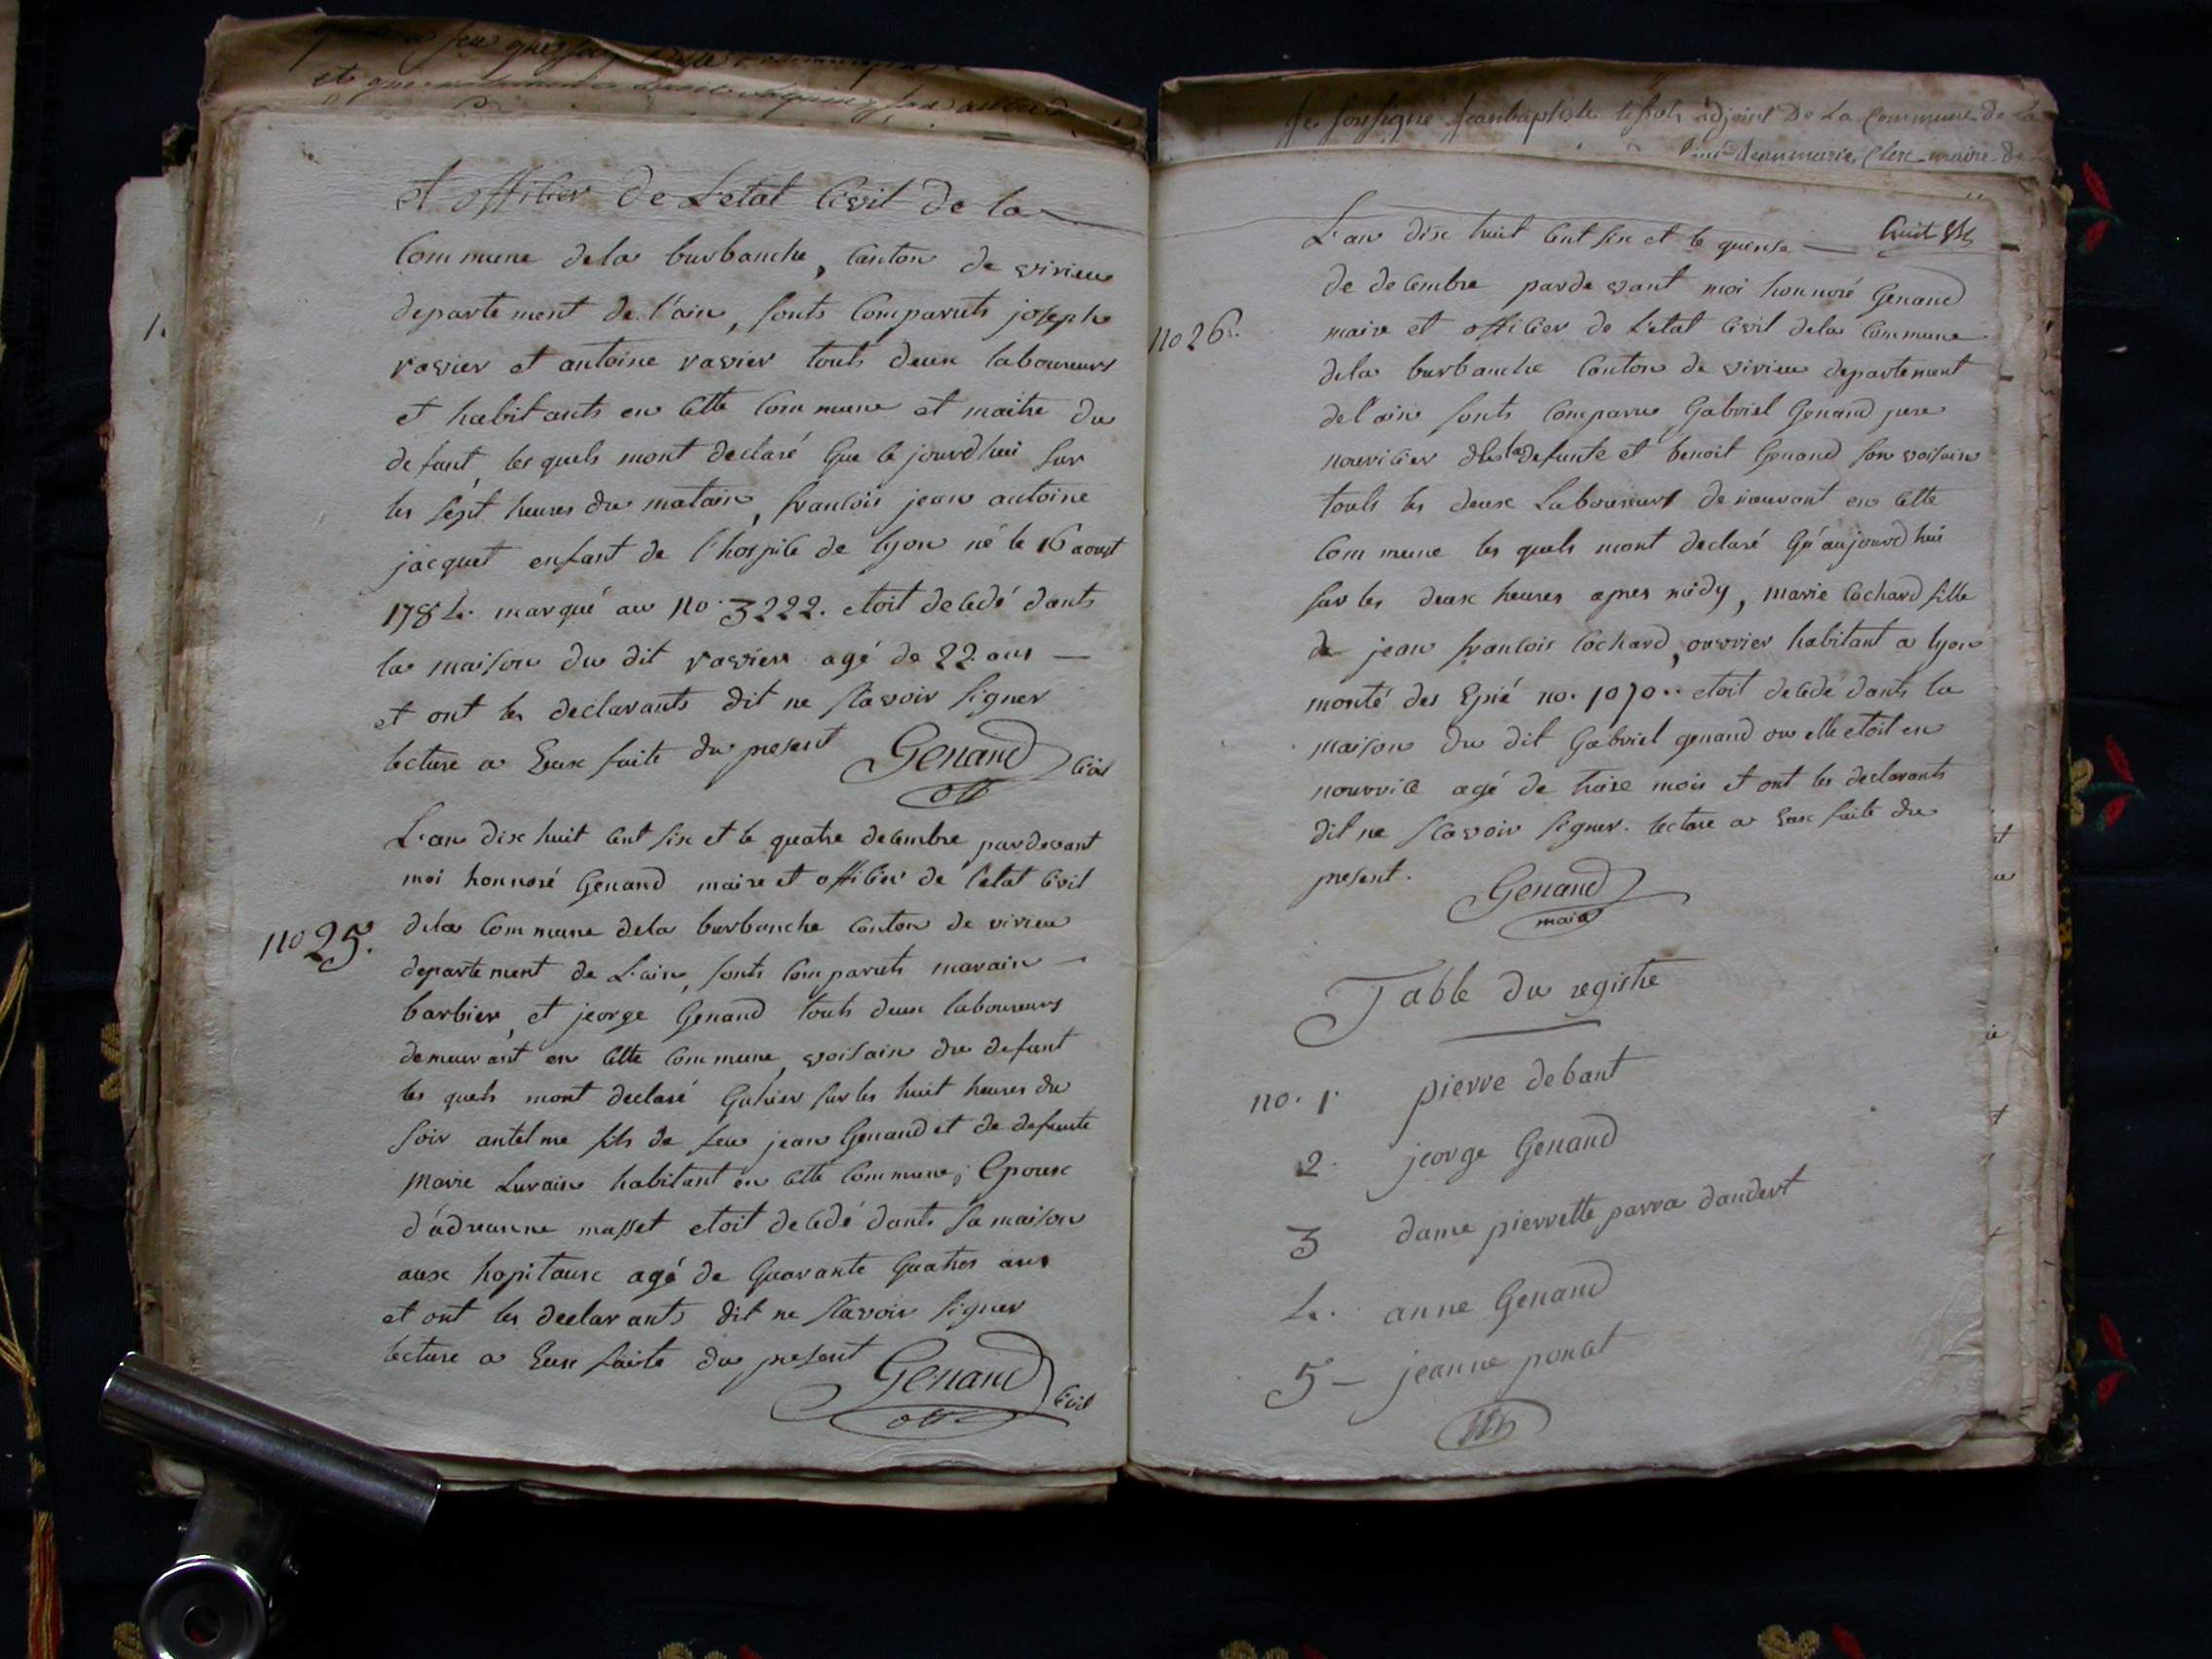 et officier de L'etat Civil de la
Commune dela burbanche, Canton de virieu
departement de l'ain, sonts Comparuts joseph
ravier et antoine ravier touts deux laboureurs
et habitants en Cette Commune et maitre du
defunt, les quels mont declaré Que Ce jourdhui sur
les sept heures du matain, francois jean antoine
jacquet enfant de l'hospice de lyon né le 16 aoust
1784. marqué au no. 3222. etoit decedé dants
la maison du dit ravier agé de 22 ans —
et ont les declarants dit ne scavoir signer
lecture a Eux faite du present Genand
Civil
L'an dix huit Cent six et le quatre decembre pardevant
moi honnoré Genand maire et officier de l'etat Civil
no 25.
dela Commune dela burbanche Canton de virieu
departement de L'ain, sonts Comparuts marain —
barbier, et jeorge Genand touts deux laboureurs
demeurant en Cette Commune, voisain du defunt
les quels mont declaré Qu'hier sur les huit heures du
soir antelme fils de feu jean Genand et de defunte
Marie Lurain habitant en Cette Commune, Epoux
d'adreanne masset etoit decedé dants sa maison
aux hopitaux agé de Quarante Quatres ans
et ont les declarants dit ne scavoir signer
lecture a Eux faite du present Genand
Civil
Je soussigné Jeanbaptiste adjoint De La Commune de La
Clerc maire
L'an dix huit Cent six et le quense — huit
de decembre parde vant moi honnoré Genand
no 26.
maire et officier de L'etat Civil dela Commune
dela burbanche Canton de virieu departement
del'ain sonts Comparu Gabriel Genand pere
nouricier de la defunte et benoit Genand son voisain
touts les deux Laboureurs demeurant en Cette
Commune les quels mont declaré Qu'aujourdhui
sur les deux heures apres midy, marie Cochard fille
de jean francois Cochard, ouvrier habitant a lyon
monté des Epié no. 1070.. etoit decedé dants la
maison du dit Gabriel genand ou elle etoit en
nourrice agé de traise mois et ont les declarants
dit ne scavoir signer. lecture a Eux faite du
present. Genand
maire
Table du registre
no. 1. pierre debaut
2. jeorge Genand
3 dame pierrette parra daudert
4. anne Genand
5 – jeanne ponat